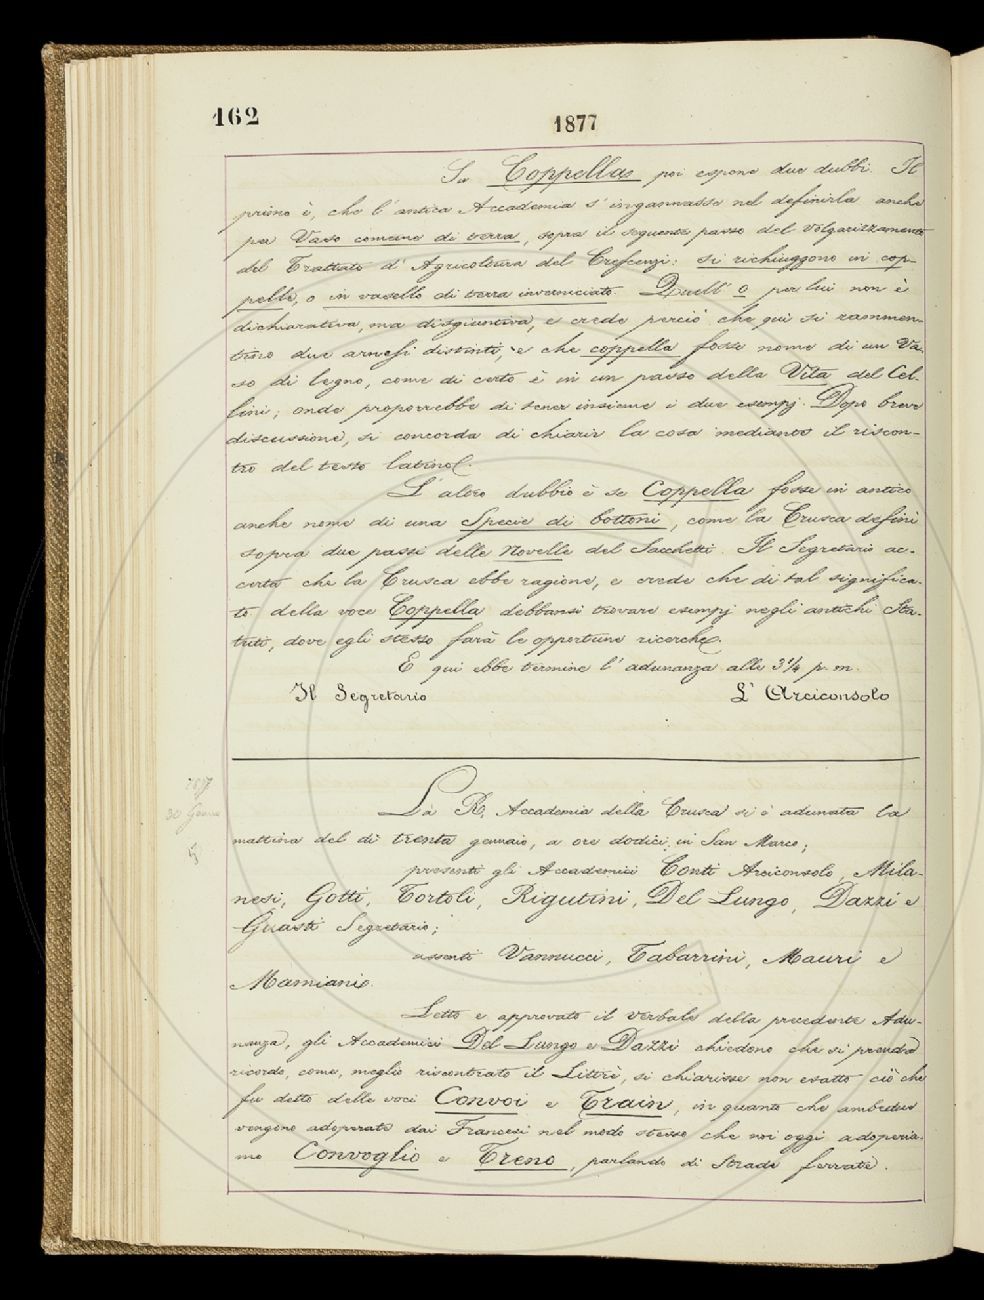 162
1877
Su Coppella poi espone due dubbi. Il
primo è, che l'antica Accademia s'ingannasse nel definirla anche
per Vaso comune di terra, sopra il seguente passo del Volgarizzamento
del Trattato d'Agricoltura del Crescenzi: si richiuggono in cop-
pelle, o in vasello di terra invernicato. Quell'o per lui non è
dichiarativa, ma disgiuntiva, e crede perciò che qui si rammen-
tino due arnesi distinti, e che coppella fosse nome di un Va-
so di legno, come di certo è in un passo della Vita del Cel-
lini; onde proporrebbe di tener insieme i due esempj. Dopo breve
discussione, si concorda di chiarir la cosa mediante il riscon-
tro del testo latino.
L'altro dubbio è se Coppella fosse in antico
anche nome di una Specie di bottoni, come la Crusca definì
sopra due passi delle Novelle del Sacchetti. Il Segretario ac-
certa che la Crusca ebbe ragione, e crede che di tal significa-
to della voce Coppella debbansi trovare esempj negli antichi Sta-
tuti, dove egli stesso farà le opportune ricerche.
E qui ebbe termine l'adunanza alle 3 1/4 p. m.
Il Segretario L'Arciconsolo
La R. Accademia della Crusca si è adunata la
1877
30 Genn
mattina del dì trenta gennaio, a ore dodici, in San Marco;
5
presenti gli Accademici Conti Arciconsolo, Mila-
nesi, Gotti, Tortoli, Rigutini, Del Lungo, Dazzi e
Guasti Segretario;
assenti Vannucci, Tabarrini, Mauri e
Mamiani.
Letto e approvato il verbale della precedente Adu-
nanza, gli Accademici Del Lungo e Dazzi chiedono che si prenda
ricordo, come, meglio riscontrato il Littrè, si chiarisse non esatto ciò che
fu detto delle voci Convoi e Train, in quanto che ambedue
vengono adoperate dai Francesi nel modo stesso che noi oggi adoperia-
mo Convoglio e Treno, parlando di Strade ferrate.